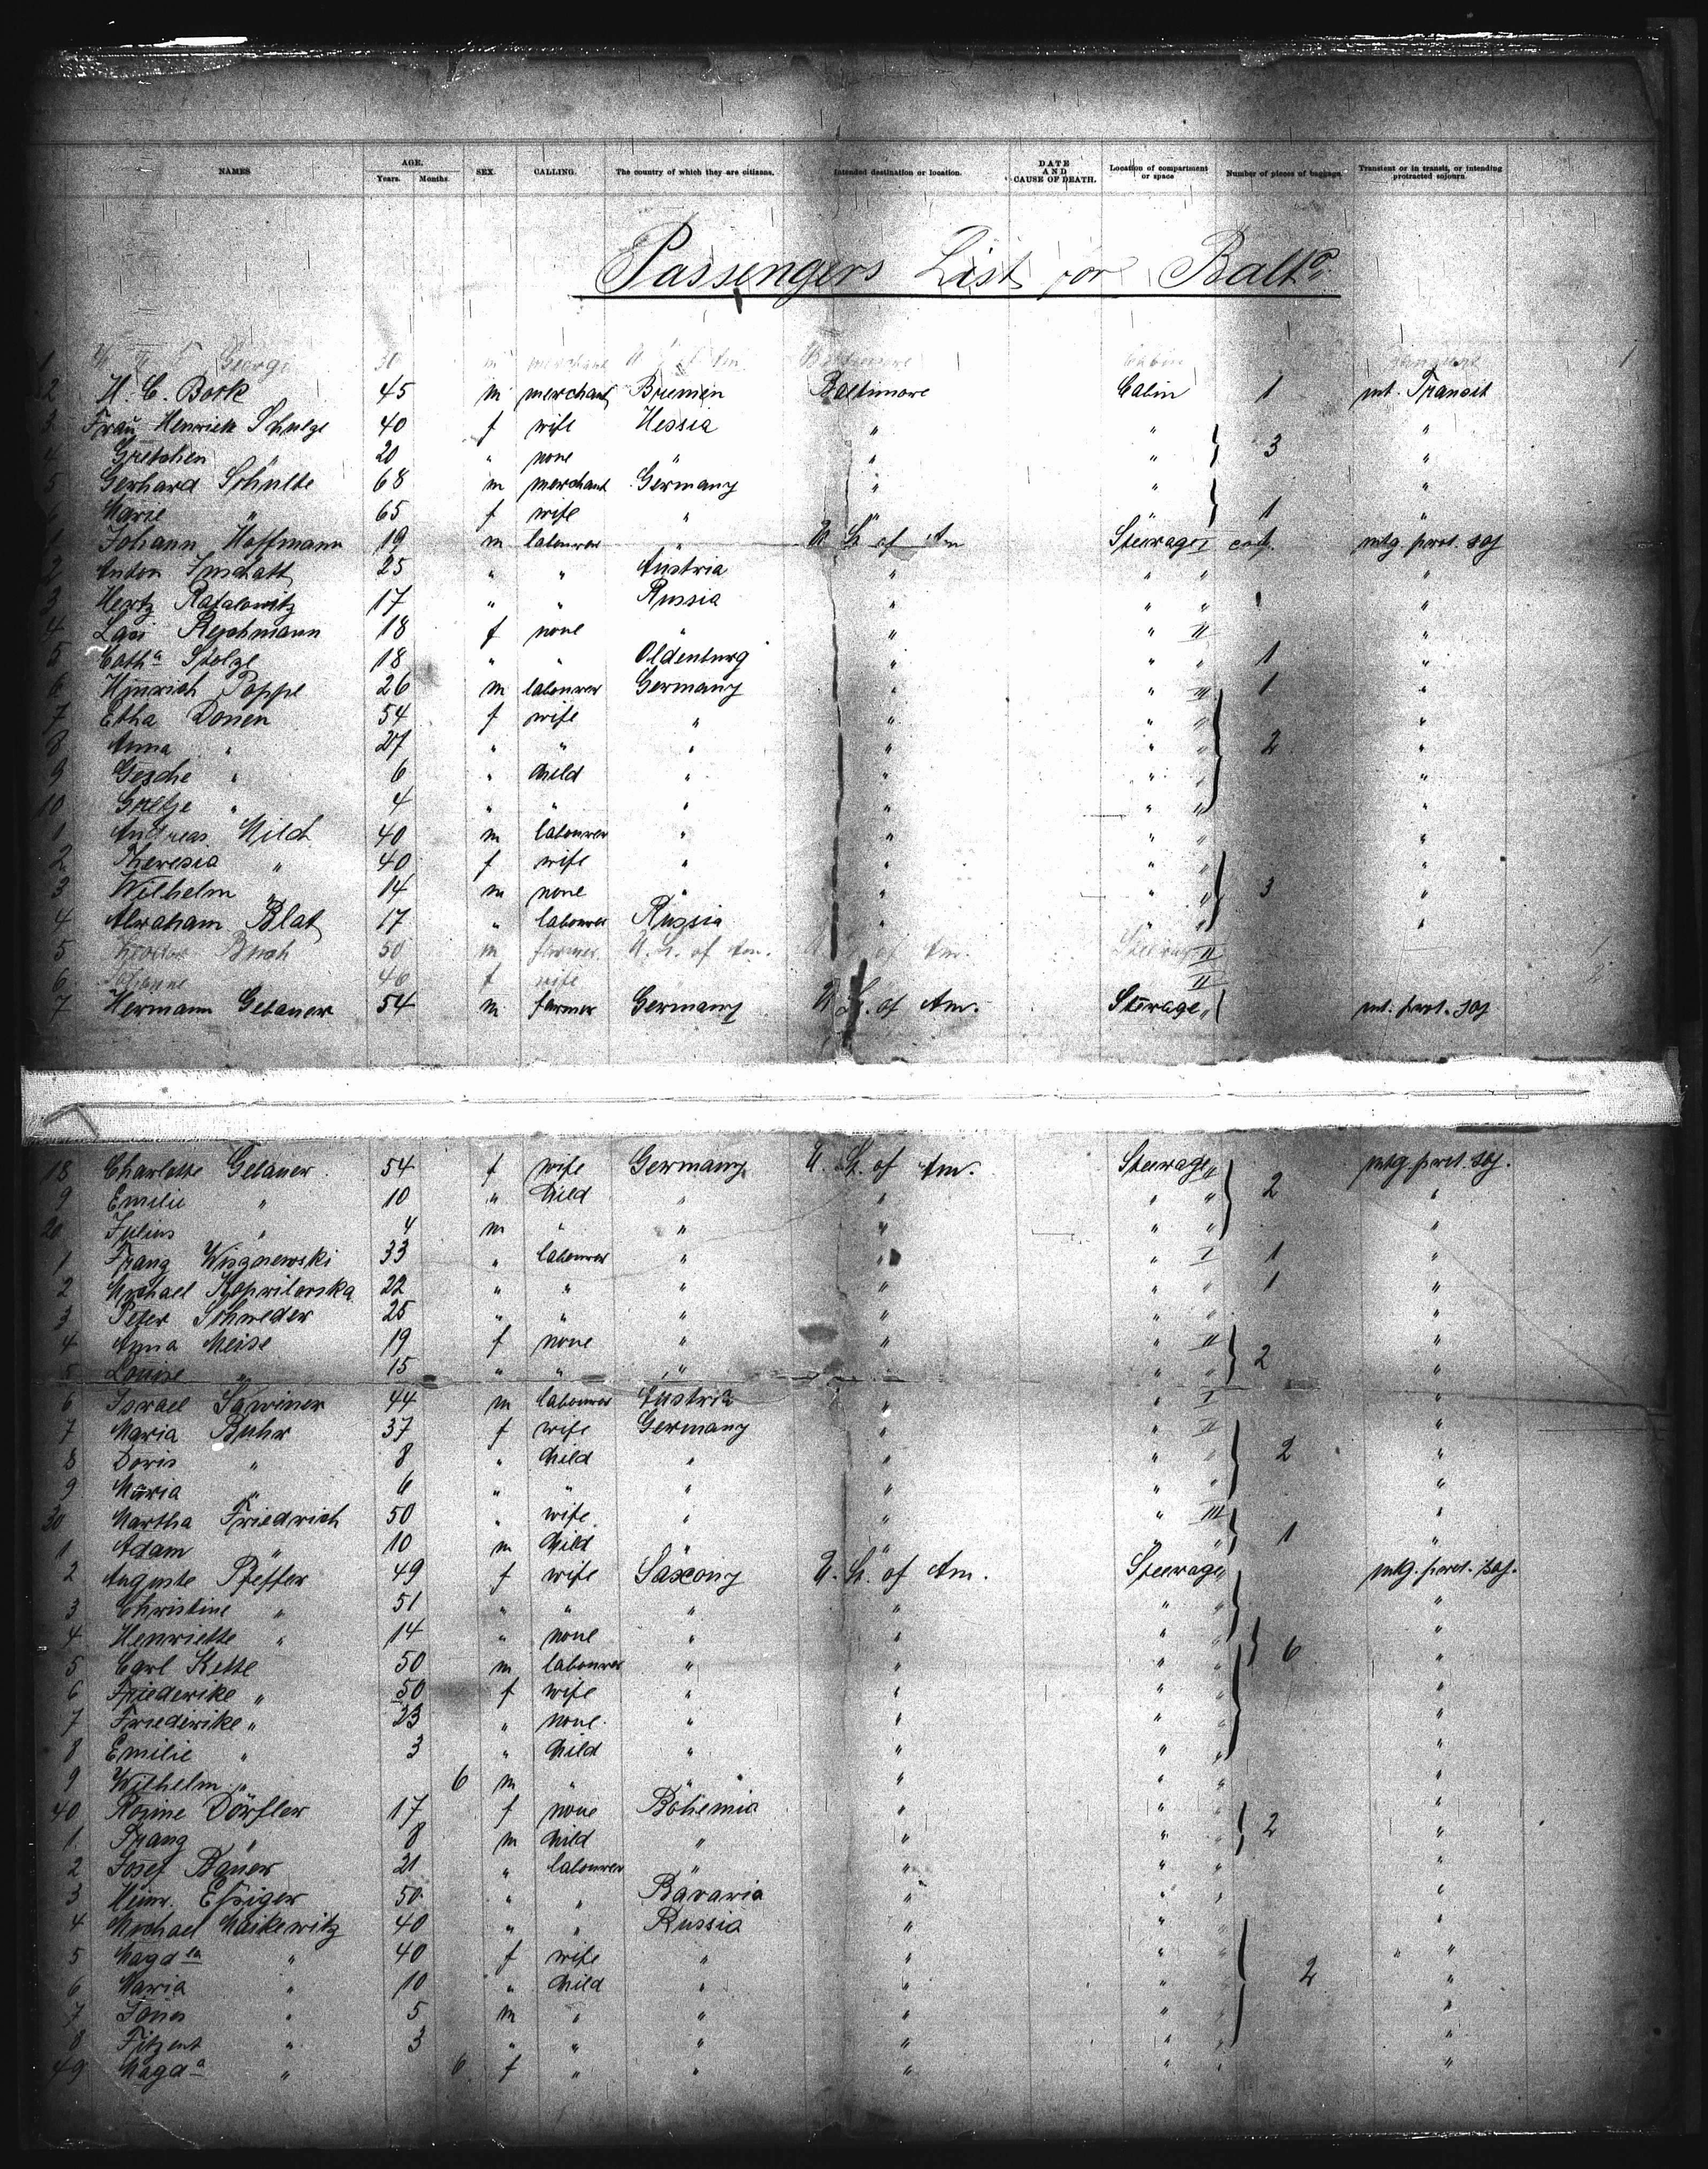 NAMES AGE. Years. Months. SEX. CALLING. The country of which they are citizens. Intended destination or location. DATE AND CAUSE OF DEATH. Location of compartment or space Number of pieces of baggage. Transient or in transit, or intending protracted sojourn.
Passengers List for Balto.
1 Georgi 30 m merchant U. S. of Am. Baltimore Cabin
2 H. C. Bork 45 m merchant Bremen Baltimore Cabin 1 Transit
3 Frau Henrich Schulze 40 f wife Hessia " " "
4 Gretchen " 20 " none " " " 3 "
5 Gerhard Schulte 68 m merchant Germany " " "
6 Marie " 65 f wife " " " 1 "
1 Johann Hoffmann 19 m labourer " U. St. of Am Steerage I prot. soj
2 Anton 25 " " Austria " " " "
3 Hertz Rafalowitz 17 " " Russia " " " 1 "
4 18 f none " " " II "
5 Catha Stolze 18 " " Oldenburg " " " 1 "
6 Hinrich Poppe 26 m labourer Germany " " III 1 "
7 Etha Donen 54 f wife " " " " "
8 Anna " 27 " " " " " " 2 "
9 Gesche " 6 " child " " " " "
10 Gretje " 4 " " " " " " "
1 Andreas Milch 40 m labourer " " " " "
2 Theresia " 40 f wife " " " " "
3 Wilhelm " 14 m none " " " " 3 "
4 Abraham Blat 17 " labourer Russia " " " "
5 Bush 50 m farmer U. St. of Am. U. St. of Am. Steerage II
6 46 f wife II
7 Hermann Gebauer 54 m farmer Germany U. St. of Am. Steerage " prot. soj
18 Charlotte Gebauer 54 f wife Germany U. St. of Am. Steerage " prot. soj.
9 Emilie " 10 " child " " " " 2 "
20 Julius " 4 m " " " " " "
1 Franz Wisznewski 33 " labourer " " " I 1 "
2 Michael 22 " " " " " " 1 "
3 Peter Schweder 25 " " " " " " "
4 Anna Meise 19 f none " " " II "
5 Louise " 15 " " " " " " 2 "
6 Israel Sawiner 44 m labourer Austria " " I "
7 Maria Buhr 37 f wife Germany " " II "
8 Doris " 8 " child " " " " 2 "
9 Maria " 6 " " " " " " "
30 Martha Friedrich 50 " wife " " " III "
1 Adam " 10 m child " " " " 1 "
2 Auguste Pfeffer 49 f wife Saxony U. St. of Am. Steerage " prot. soj.
3 Christine " 51 " " " " " " "
4 Henriette " 14 " none " " " " "
5 Carl Kette 50 m labourer " " " " 6 "
6 Friederike " 50 f wife " " " " "
7 Friederike " 23 " none " " " " "
8 Emilie " 3 " child " " " " "
9 Wilhelm " 6 m " " " " " "
40 Rosine Dörfler 17 f none Bohemia " " " "
1 Franz " 8 m child " " " " 2 "
2 Josef Bauer 21 " labourer " " " " "
3 Heinr. Etziger 50 " " Bavaria " " " "
4 Michael Maikewitz 40 " " Russia " " " "
5 Magdla " 40 f wife " " " " " "
6 Maria " 10 " child " " " " 2 "
7 Jonas " 5 m " " " " " "
8 " 3 " " " " " " "
49 Magda " 6 f " " " " " "